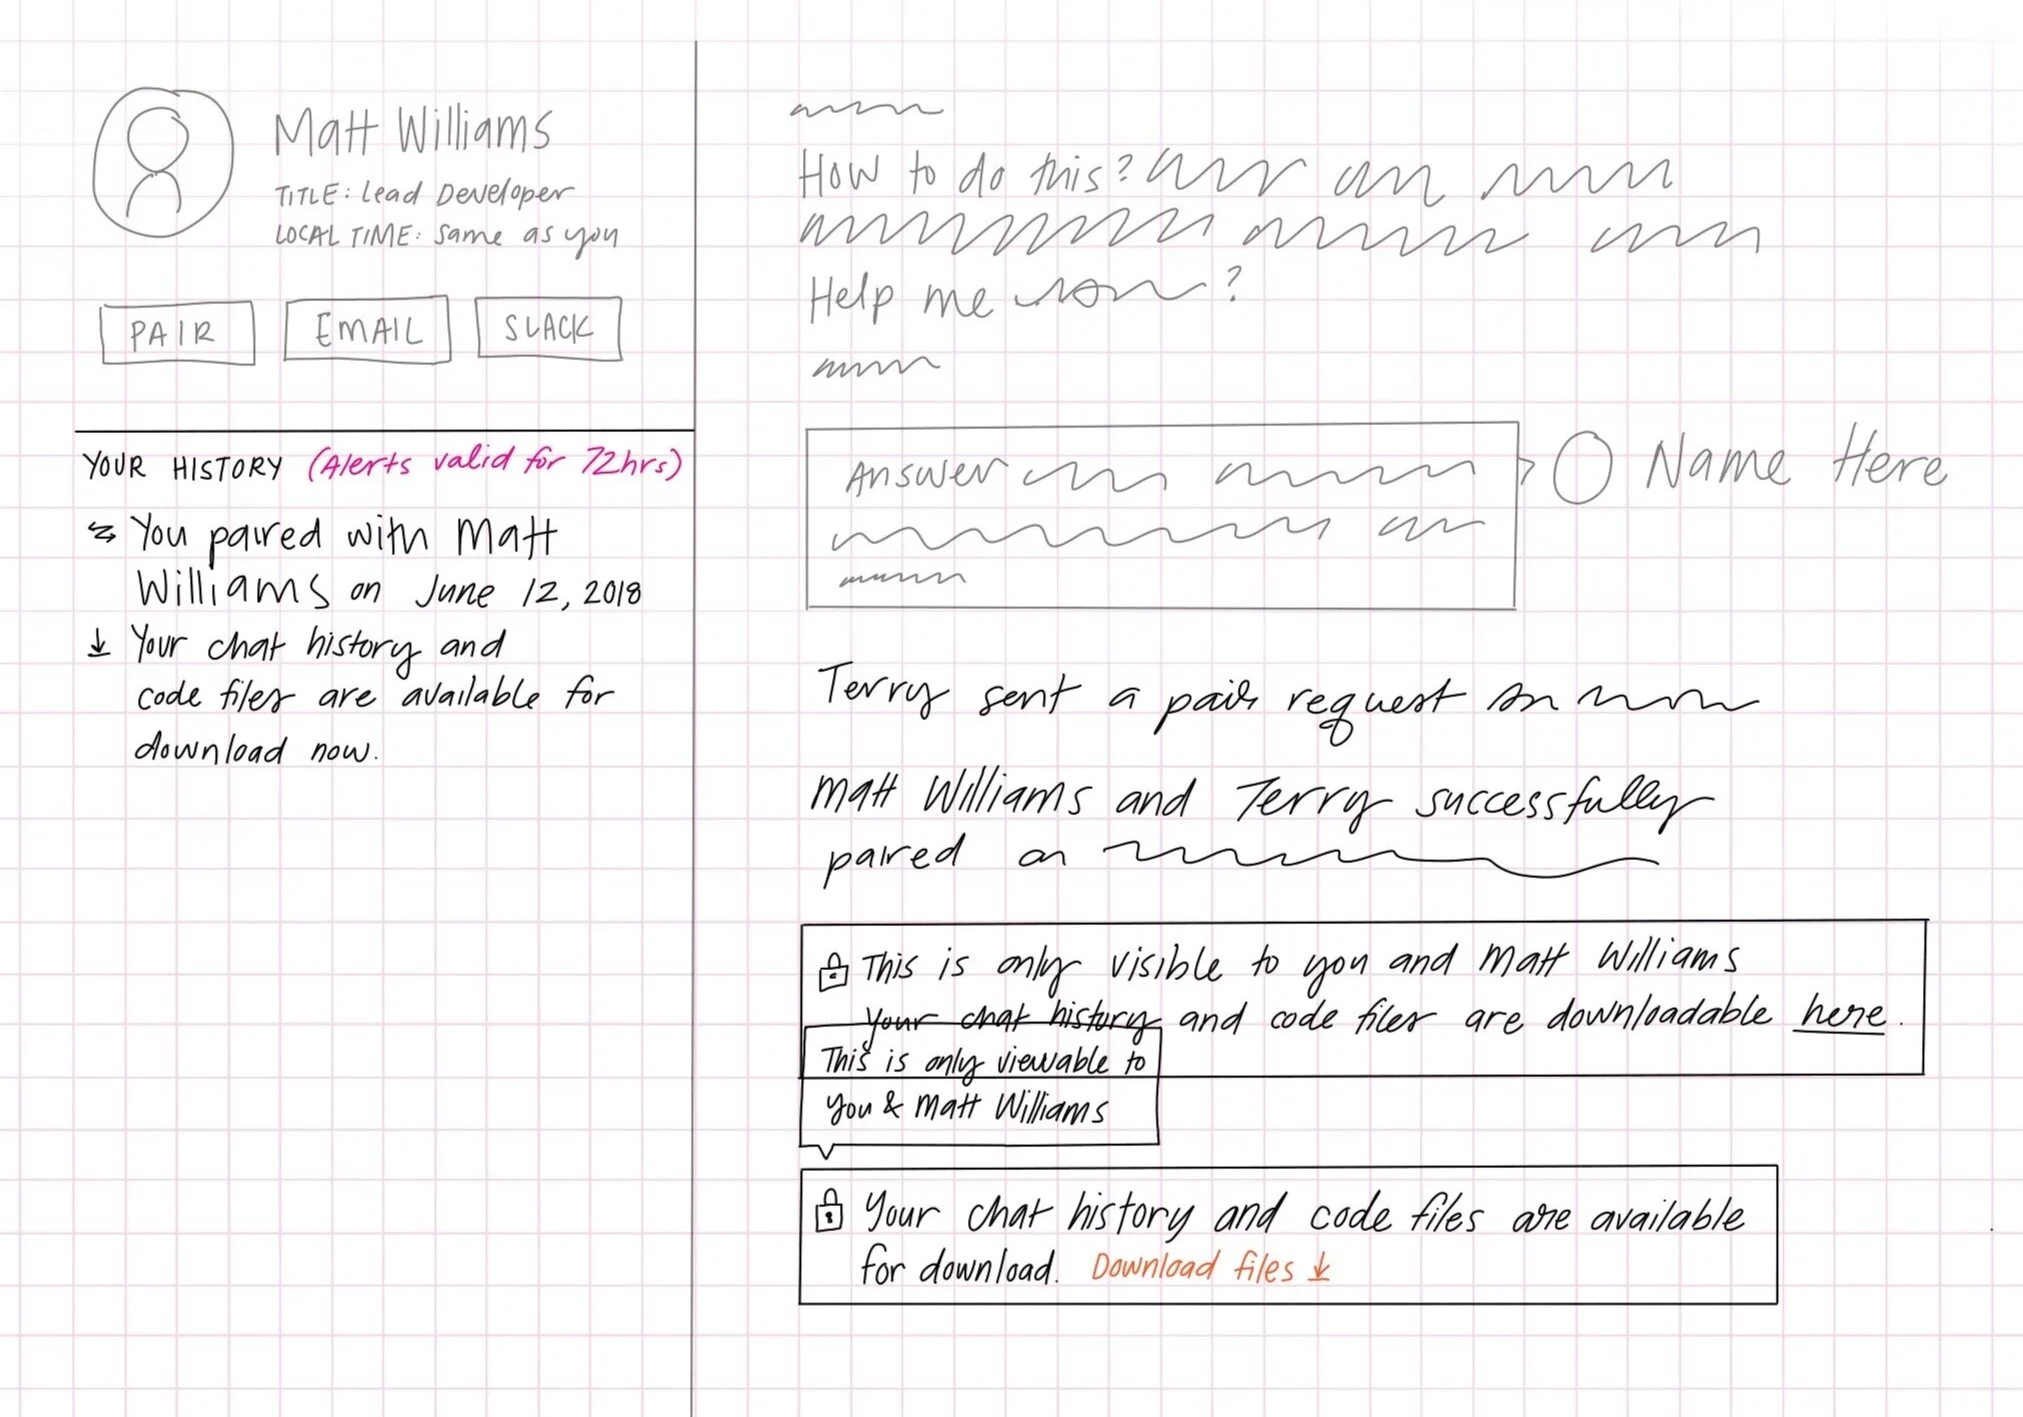 Matt Williams
TITLE: Lead Developer
LOCAL TIME: Same as you
PAIR
EMAIL
SLACK
YOUR HISTORY (Alerts valid for 72hrs)
You paired with Matt
Williams on June 12, 2018
Your chat history and
code files are available for
download now.
How to do this?
Help me ?
Answer
Name Here
Terry sent a pair request on
Matt Williams and Terry successfully
paired on
This is only visible to you and Matt Williams
Your chat history and code files are downloadable here.
This is only viewable to
you & Matt Williams
Your chat history and code files are available
for download. Download files